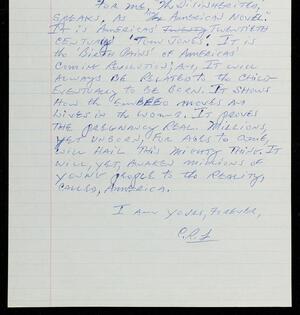 FOR ME, "THE DISINHERITED,
SPEAKS, AS "THE AMERICAN NOVEL."
IT IS AMERICAS' TWENTIETH
CENTURY "TOM JONES". IT IS
THE "BIRTH PAINS" OF AMERICAS'
COMING REVOLUTION; AND, IT WILL
ALWAYS BE RELATED TO THE CHILD
EVENTUALLY TO BE BORN. IT SHOWS
HOW THE EMBEEO MOVES AND
LIVES IN THE WOMB. IT PROVES
THE PREGNANCY REAL. MILLIONS,
YET UNBORN, FOR AGES TO COME,
WILL HAIL THIS MIGHTY THING. IT
WILL, YET, AWAKEN MILLIONS OF
YOUNG PEOPLE TO THE REALITY,
CALLED, AMERICA.
I AM YOURS, FOREVER,